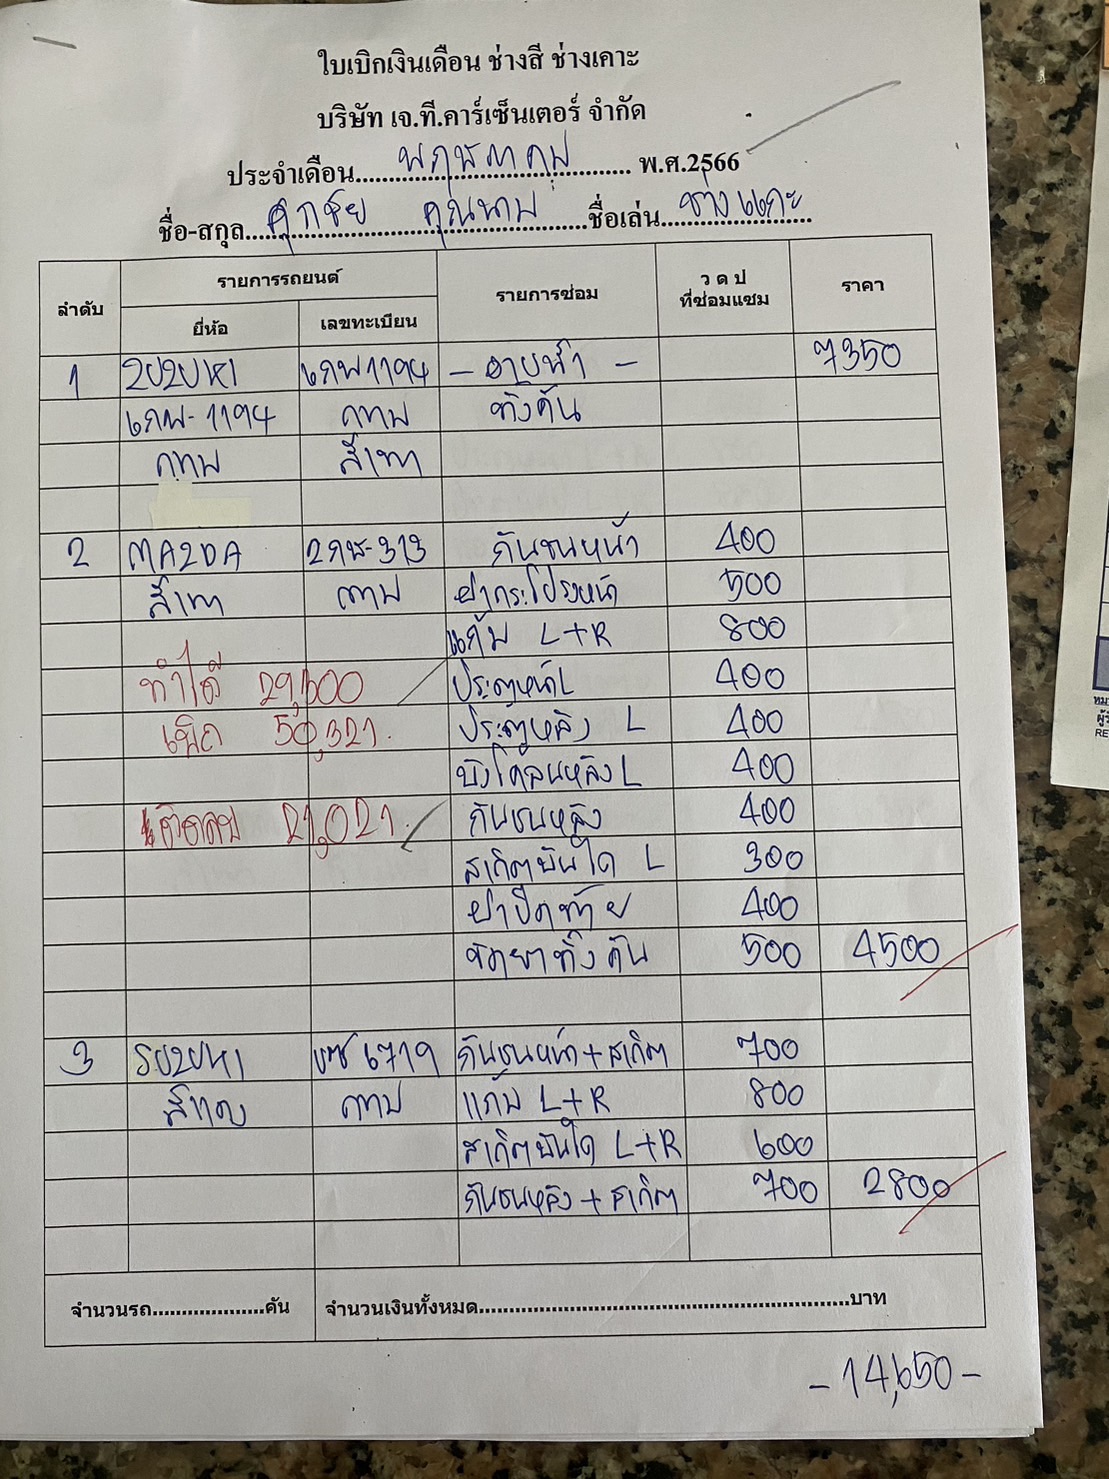 ใบเบิกเงินเดือน ช่างสี ช่างเคาะ
บริษัท เจ.ที.คาร์เซ็นเตอร์ จำกัด
ประจำเดือน.....พฤษภาคม..... พ.ศ.2566
ชื่อ-สกุล.....ศุภชัย คุณนาม.....ชื่อเล่น.....ช่างแกะ.....
ลำดับ รายการรถยนต์ รายการซ่อม ว ด ป ที่ซ่อมแซม ราคา
ยี่ห้อ เลขทะเบียน
1 2U2UKI 1194 - อาบน้ำ - 7350
1194 กทม ทั้งคัน
กทม สีเทา
2 MA2DA 313 กันชนหน้า 400
สีเทา กทม ฝากระโปรงหน้า 500
แก้ม L+R 800
ทำได้ 29,300 ประตูหน้า L 400
เบิก 50,321. ประตูหลัง L 400
บังโคลนหลัง L 400
ติดลบ 21,021. กันชนหลัง 400
สเกิตบันได L 300
ฝาปิดท้าย 400
ขัดยาทั้งคัน 500 4500
3 SU2UKI 6719 กันชนหน้า + สเกิต 700
สีแดง กทม แก้ม L+R 800
สเกิตบันได L+R 600
กันชนหลัง + สเกิต 700 2800
จำนวนรถ...................คัน จำนวนเงินทั้งหมด..............................................................บาท
- 14,650 -